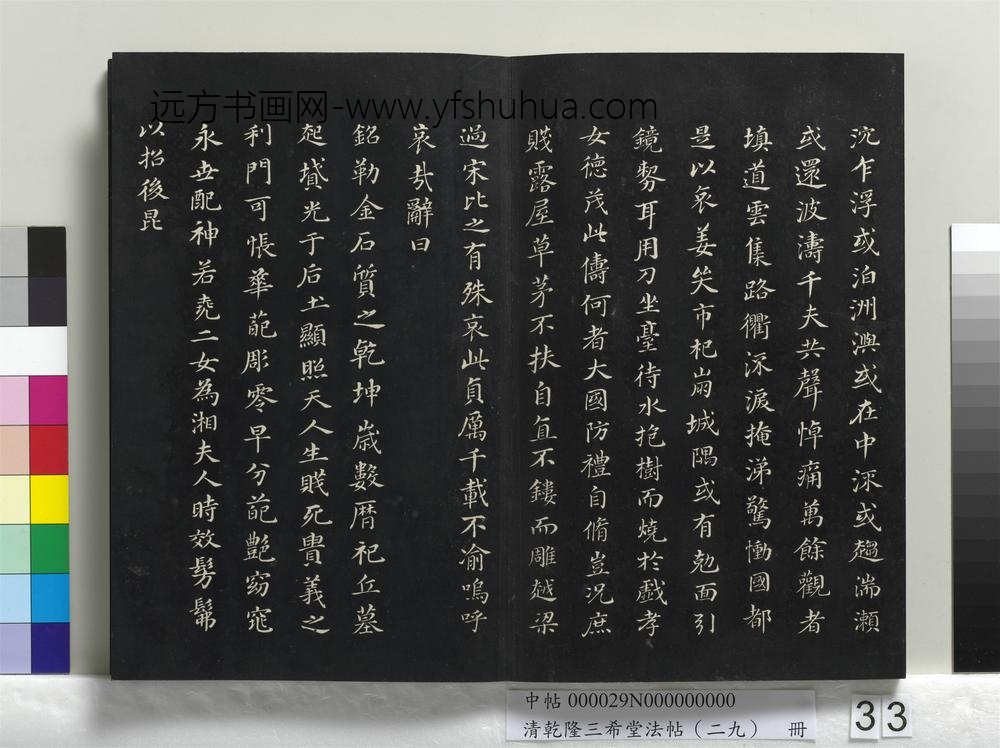 远方书画网-www.yfshuhua.com
沉乍浮或泊洲澳或在中深或趨湍瀨
或還波濤千夫共聲悼痛萬餘觀者
填道雲集路衢深淚掩涕驚慟國都
是以哀姜哭市杞崩城隅或有勊面引
鏡剺耳用刀坐臺待水抱樹而燒於戲孝
女德茂此儔何者大國防禮自脩豈況庶
賤露屋草茅不扶自直不鏤而雕越梁
過宋比之有殊哀此貞厲千載不渝嗚呼
哀哉辭曰
銘勒金石質之乾坤歲數曆祀丘墓
起墳光于后土顯照天人生賤死貴義之
利門可悵華葩彫零早分葩艷窈窕
永世配神若堯二女為湘夫人時效髣髴
以招後昆
中帖 000029N000000000
清乾隆三希堂法帖（二九） 冊
33